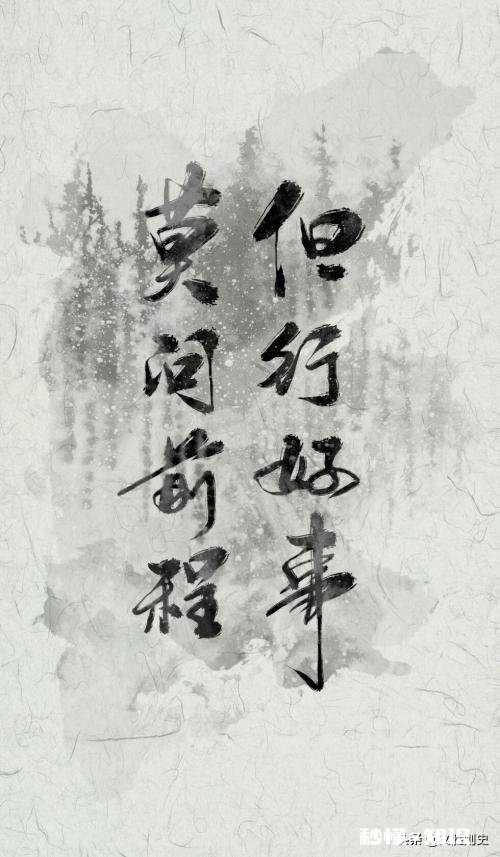 但行好事
莫问前程
秒懂·知识